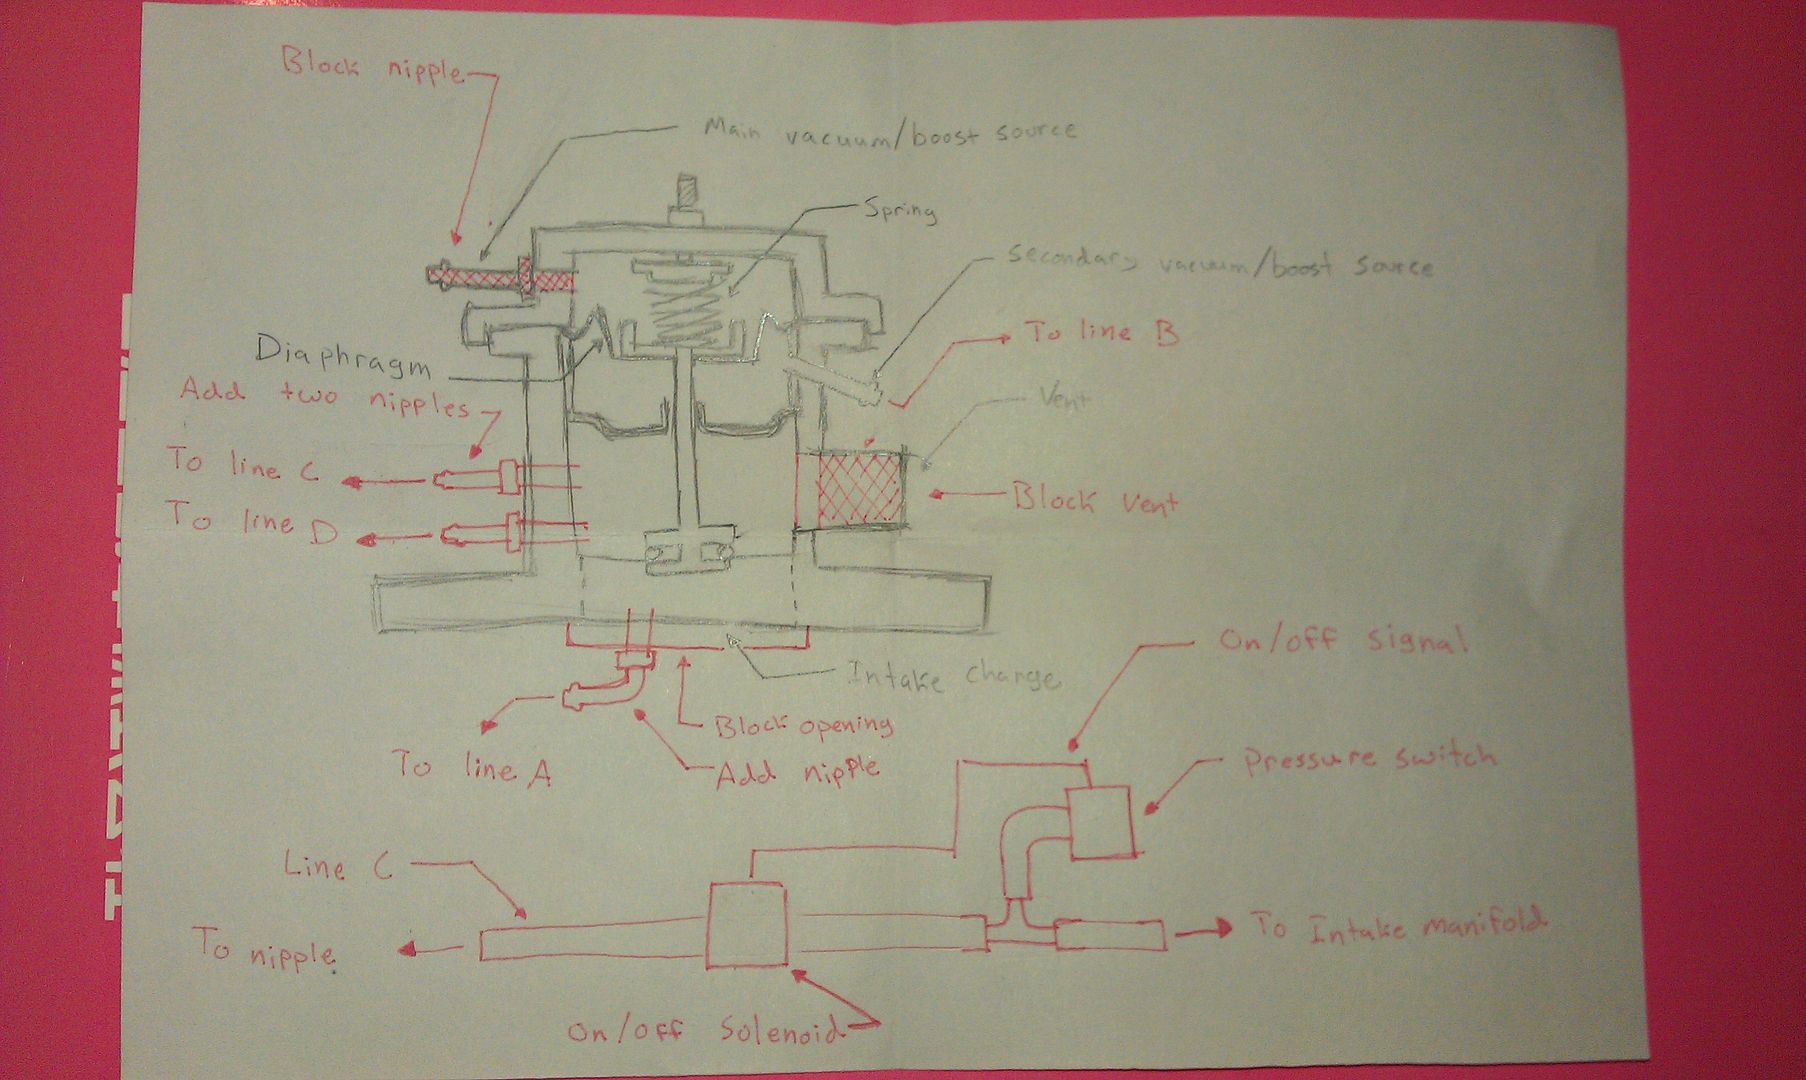 Block nipple
Main vacuum/boost source
Spring
Secondary vacuum/boost source
To line B
Diaphragm
Add two nipples
Vent
To line C
Block vent
To line D
Intake charge
On/off signal
Block opening
To line A
Add nipple
Pressure switch
Line C
To nipple
To Intake manifold
On/off Solenoid